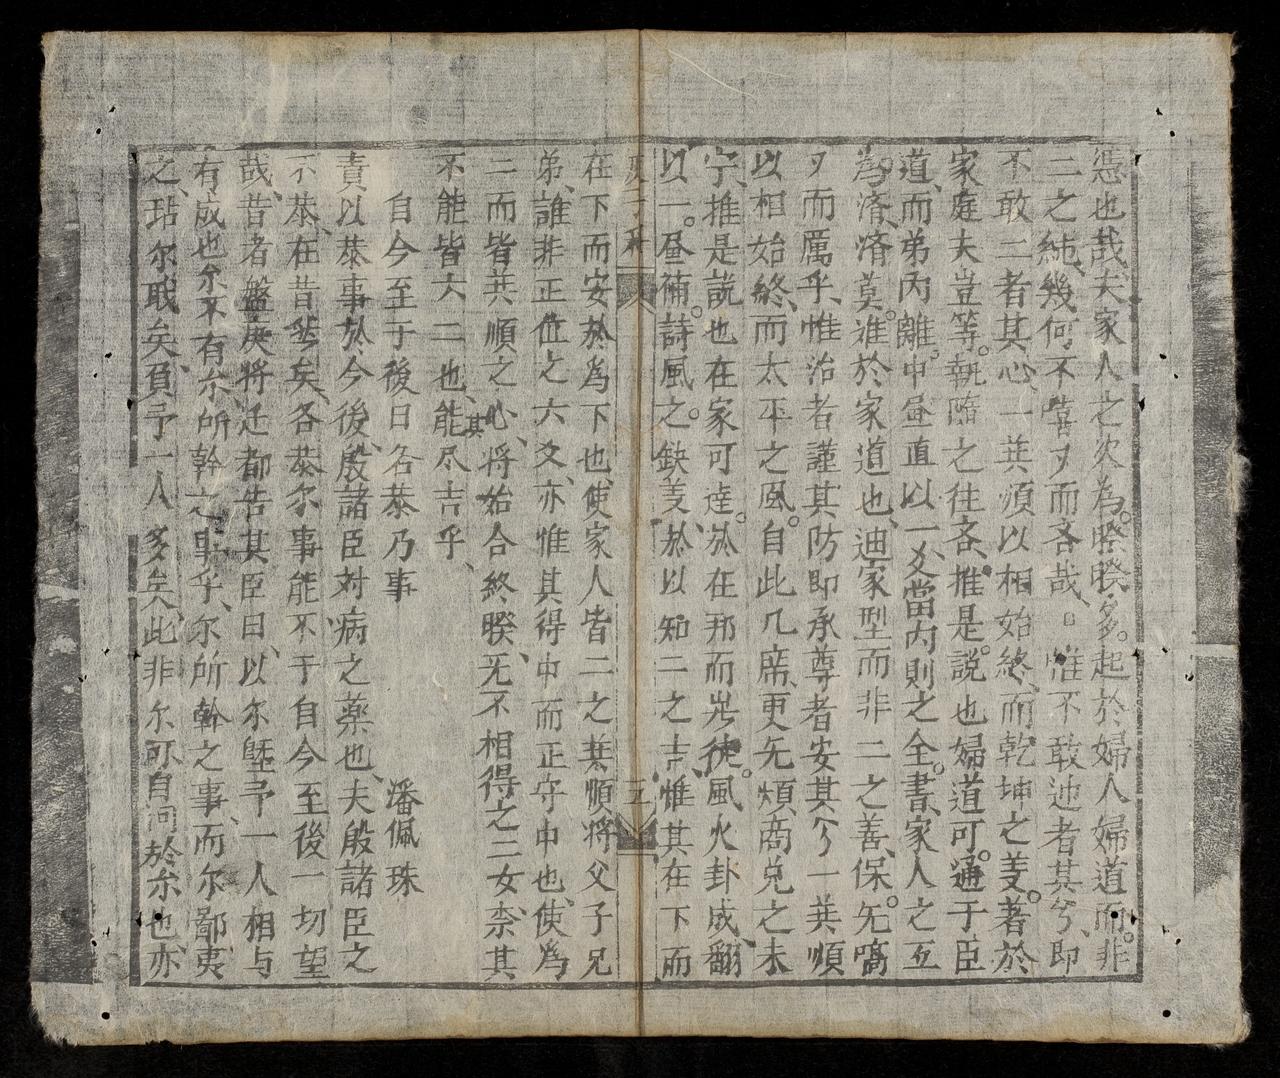 憑也哉夫家人之次為。睽睽多。起於婦人婦道而。非
二之純、幾何不嘻々而吝哉。惟不敢迚者其分、即
不敢二者其心、一其順以相始終、而乾坤之美。著於
家庭夫豈等。執隨之往吝、推是。説也婦道可。通于臣
道、而弟内離。中昼直以一爻當内則之全。書、家人之五
為濟、濟莫。难於家道也、迪家型而非二之善、保。旡嗃
々而厲乎、惟治者謹其防即承尊者安其分一其順
以相始終、而太平之風。自此几席、更旡煩商兑之未
宁、推是説也在家可達。於在邦而歩徙。風火卦成、翻
以一。昼補。詩風。之。鈌美、於以知二之吉、惟其在下而
五
在下而安於為下也、使家人皆二之其順、將父子兄
弟、誰非正位之六爻、亦惟其得中而正守中也、使為
二而皆其順之心、将始合終睽、旡不相得之二女、柰其
不能皆六二也、能其尽吉乎、
自今至于後日各恭乃事 潘佩珠
責以恭事於今後、殷諸臣対病之薬也、夫殷諸臣之
不恭、在昔然矣、各恭尔事能不于自今至後一切望
哉、昔者盤庚将迁都告其臣曰、以尔曁予一人相与
有成也尔不有尔所幹之事乎、尔所幹之事、而尔鄙夷
之、玷尔职矣、負予一人多矣、此非尔可自问於尔也、亦